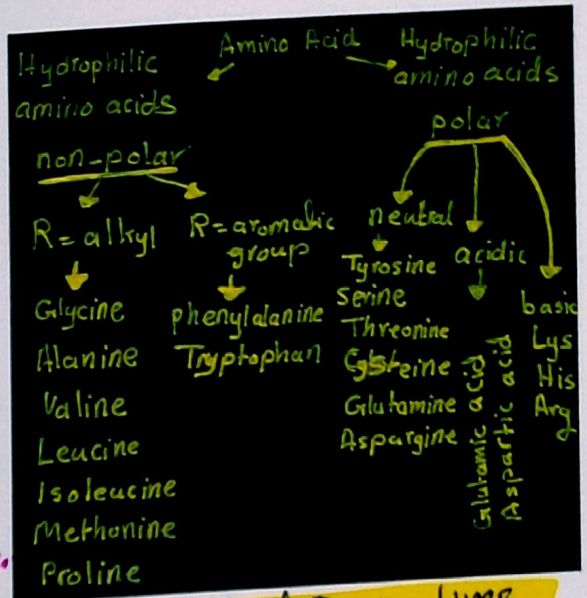 Amino Acid
Hydrophilic
amino acids
non-polar
R = alkyl
Glycine
Alanine
Valine
Leucine
Isoleucine
Methonine
Proline
R = aromatic
group
phenylalanine
Tryptophan
Hydrophilic
amino acids
polar
neutral
Tyrosine
Serine
Threonine
Cysteine
Glutamine
Aspargine
acidic
Glutamic acid
Aspartic acid
basic
Lys
His
Arg